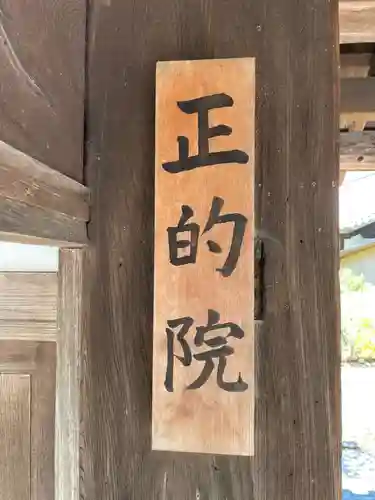 正的院